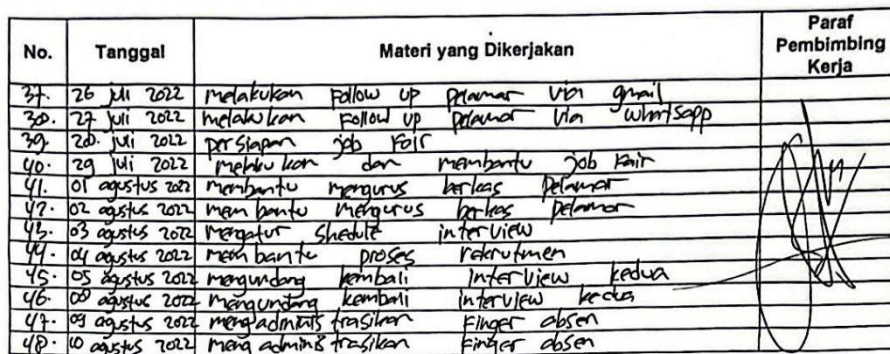 No. Tanggal Materi yang Dikerjakan Paraf Pembimbing Kerja
37. 26 juli 2022 melakukan Follow up pelamar via gmail
38. 27 juli 2022 melakukan Follow up pelamar via whatsapp
39. 28 juli 2022 persiapan job Fair
40. 29 juli 2022 melakukan dan membantu job Fair
41. 01 agustus 2022 membantu mengurus berkas pelamar
42. 02 agustus 2022 membantu mengurus berkas pelamar
43. 03 agustus 2022 mengatur Shedule interview
44. 04 agustus 2022 membantu proses rekrutmen
45. 05 agustus 2022 mengundang kembali interview kedua
46. 08 agustus 2022 mengundang kembali interview kedua
47. 09 agustus 2022 mengadministrasikan Finger absen
48. 10 agustus 2022 mengadministrasikan Finger absen